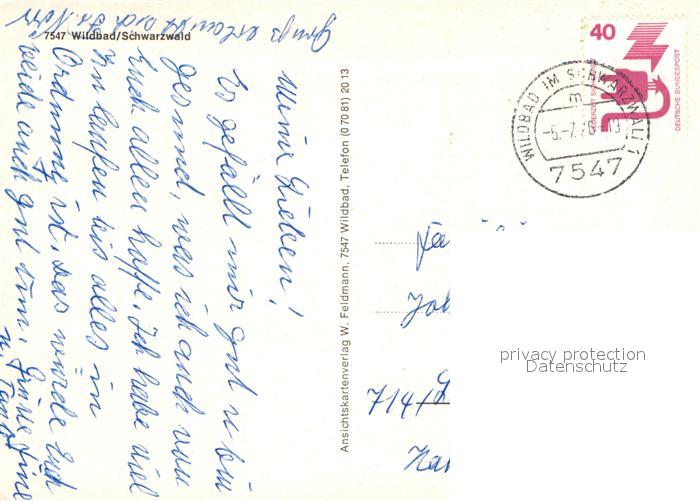 7547 Wildbad/Schwarzwald
Meine Lieben!
Es gefällt mir gut u bin
gesund, was ich auch von
Euch allen hoffe. Ich habe viel
zu laufen bis alles in
Ordnung ist. Das würde Euch
beide auch gut tun. Grüße
u. Tante
Ansichtskartenverlag W. Feldmann, 7547 Wildbad, Telefon (0 70 81) 2013
40
JEDERZEIT SICHERHEIT
DEUTSCHE BUNDESPOST
WILDBAD IM SCHWARZWALD 1
m
7547
Joh
714/
privacy protection
Datenschutz